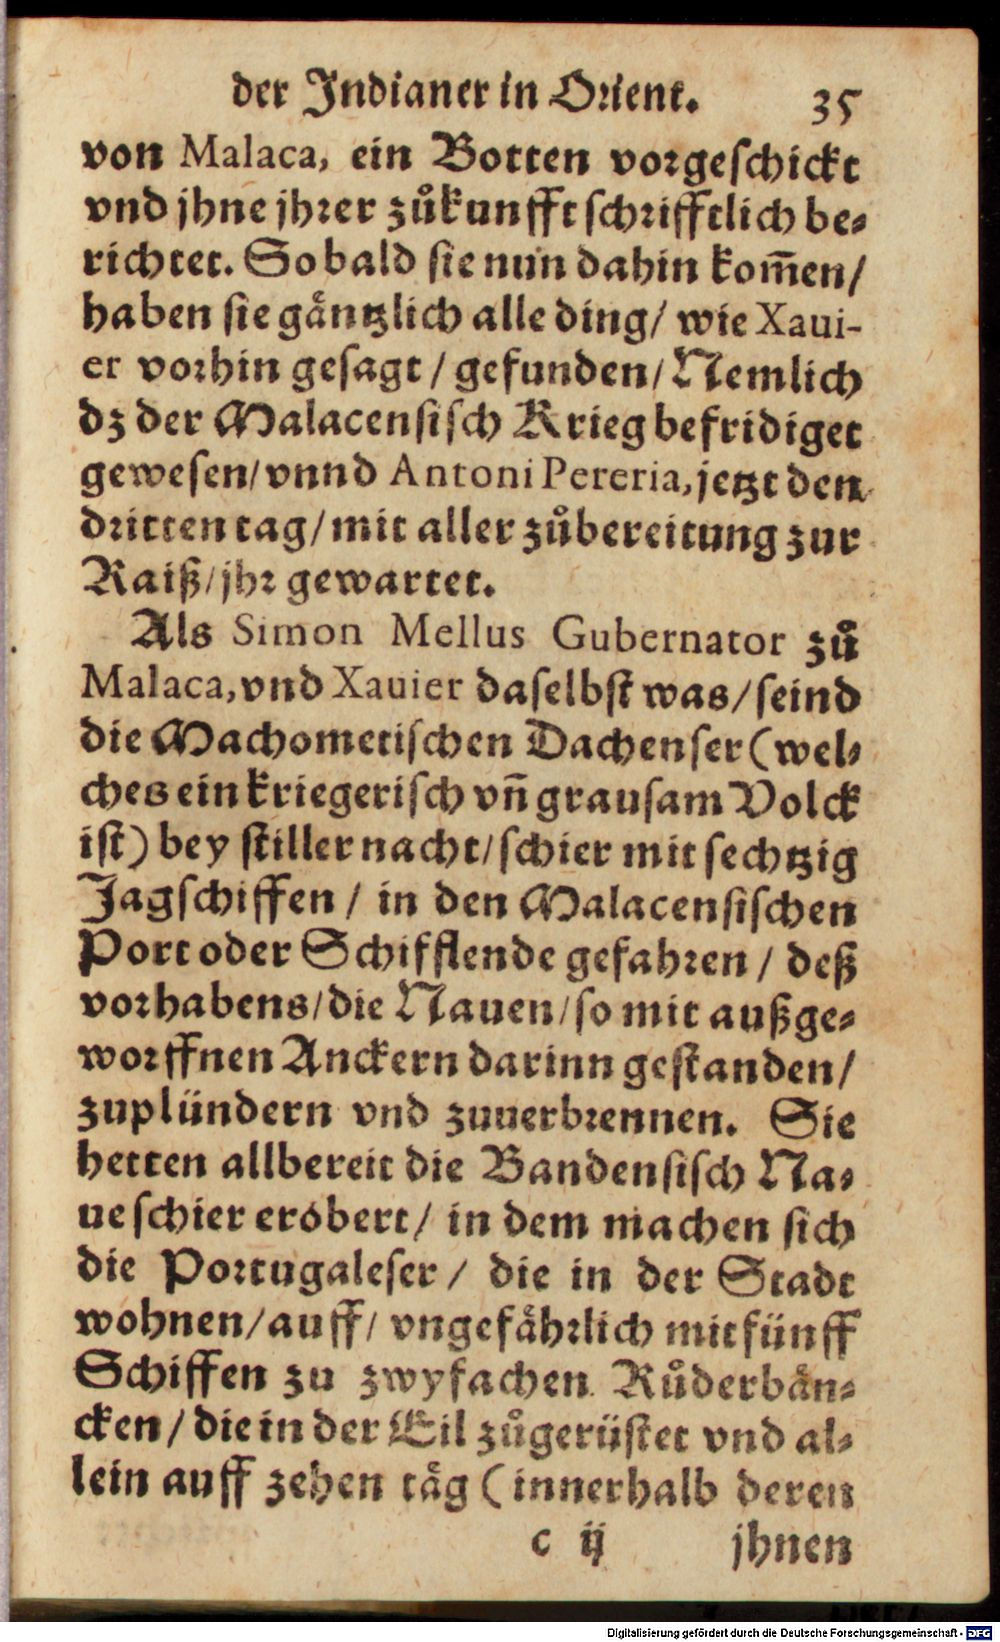 der Indianer in Orient. 35
von Malaca, ein Botten vorgeschickt
vnd jhne jhrer zůkunfft schrifftlich be⸗
richtet. So bald sie nun dahin kom̃en/
haben sie gäntzlich alle ding/ wie Xaui-
er vorhin gesagt / gefunden/ Nemlich
dz der Malacensisch Krieg befridiget
gewesen/ vnnd Antoni Pereria, jetzt den
dritten tag/ mit aller zůbereitung zur
Raiß/ jhr gewartet.
Als Simon Mellus Gubernator zů
Malaca, vnd Xauier daselbst was/ seind
die Machometischen Dachenser (wel⸗
ches ein kriegerisch vñ grausam Volck
ist) bey stiller nacht/ schier mit sechtzig
Jagschiffen / in den Malacensischen
Port oder Schifflende gefahren / deß
vorhabens/ die Nauen/ so mit außge⸗
worffnen Anckern darinn gestanden/
zuplündern vnd zuuerbrennen. Sie
hetten allbereit die Bandensisch Na⸗
ue schier erobert/ in dem machen sich
die Portugaleser / die in der Stadt
wohnen/ auff/ vngefährlich mit fünff
Schiffen zu zwyfachen Růderbän⸗
cken / die in der Eil zůgerüstet vnd al⸗
lein auff zehen täg (innerhalb deren
c ij jhnen
Digitalisierung gefördert durch die Deutsche Forschungsgemeinschaft - DFG